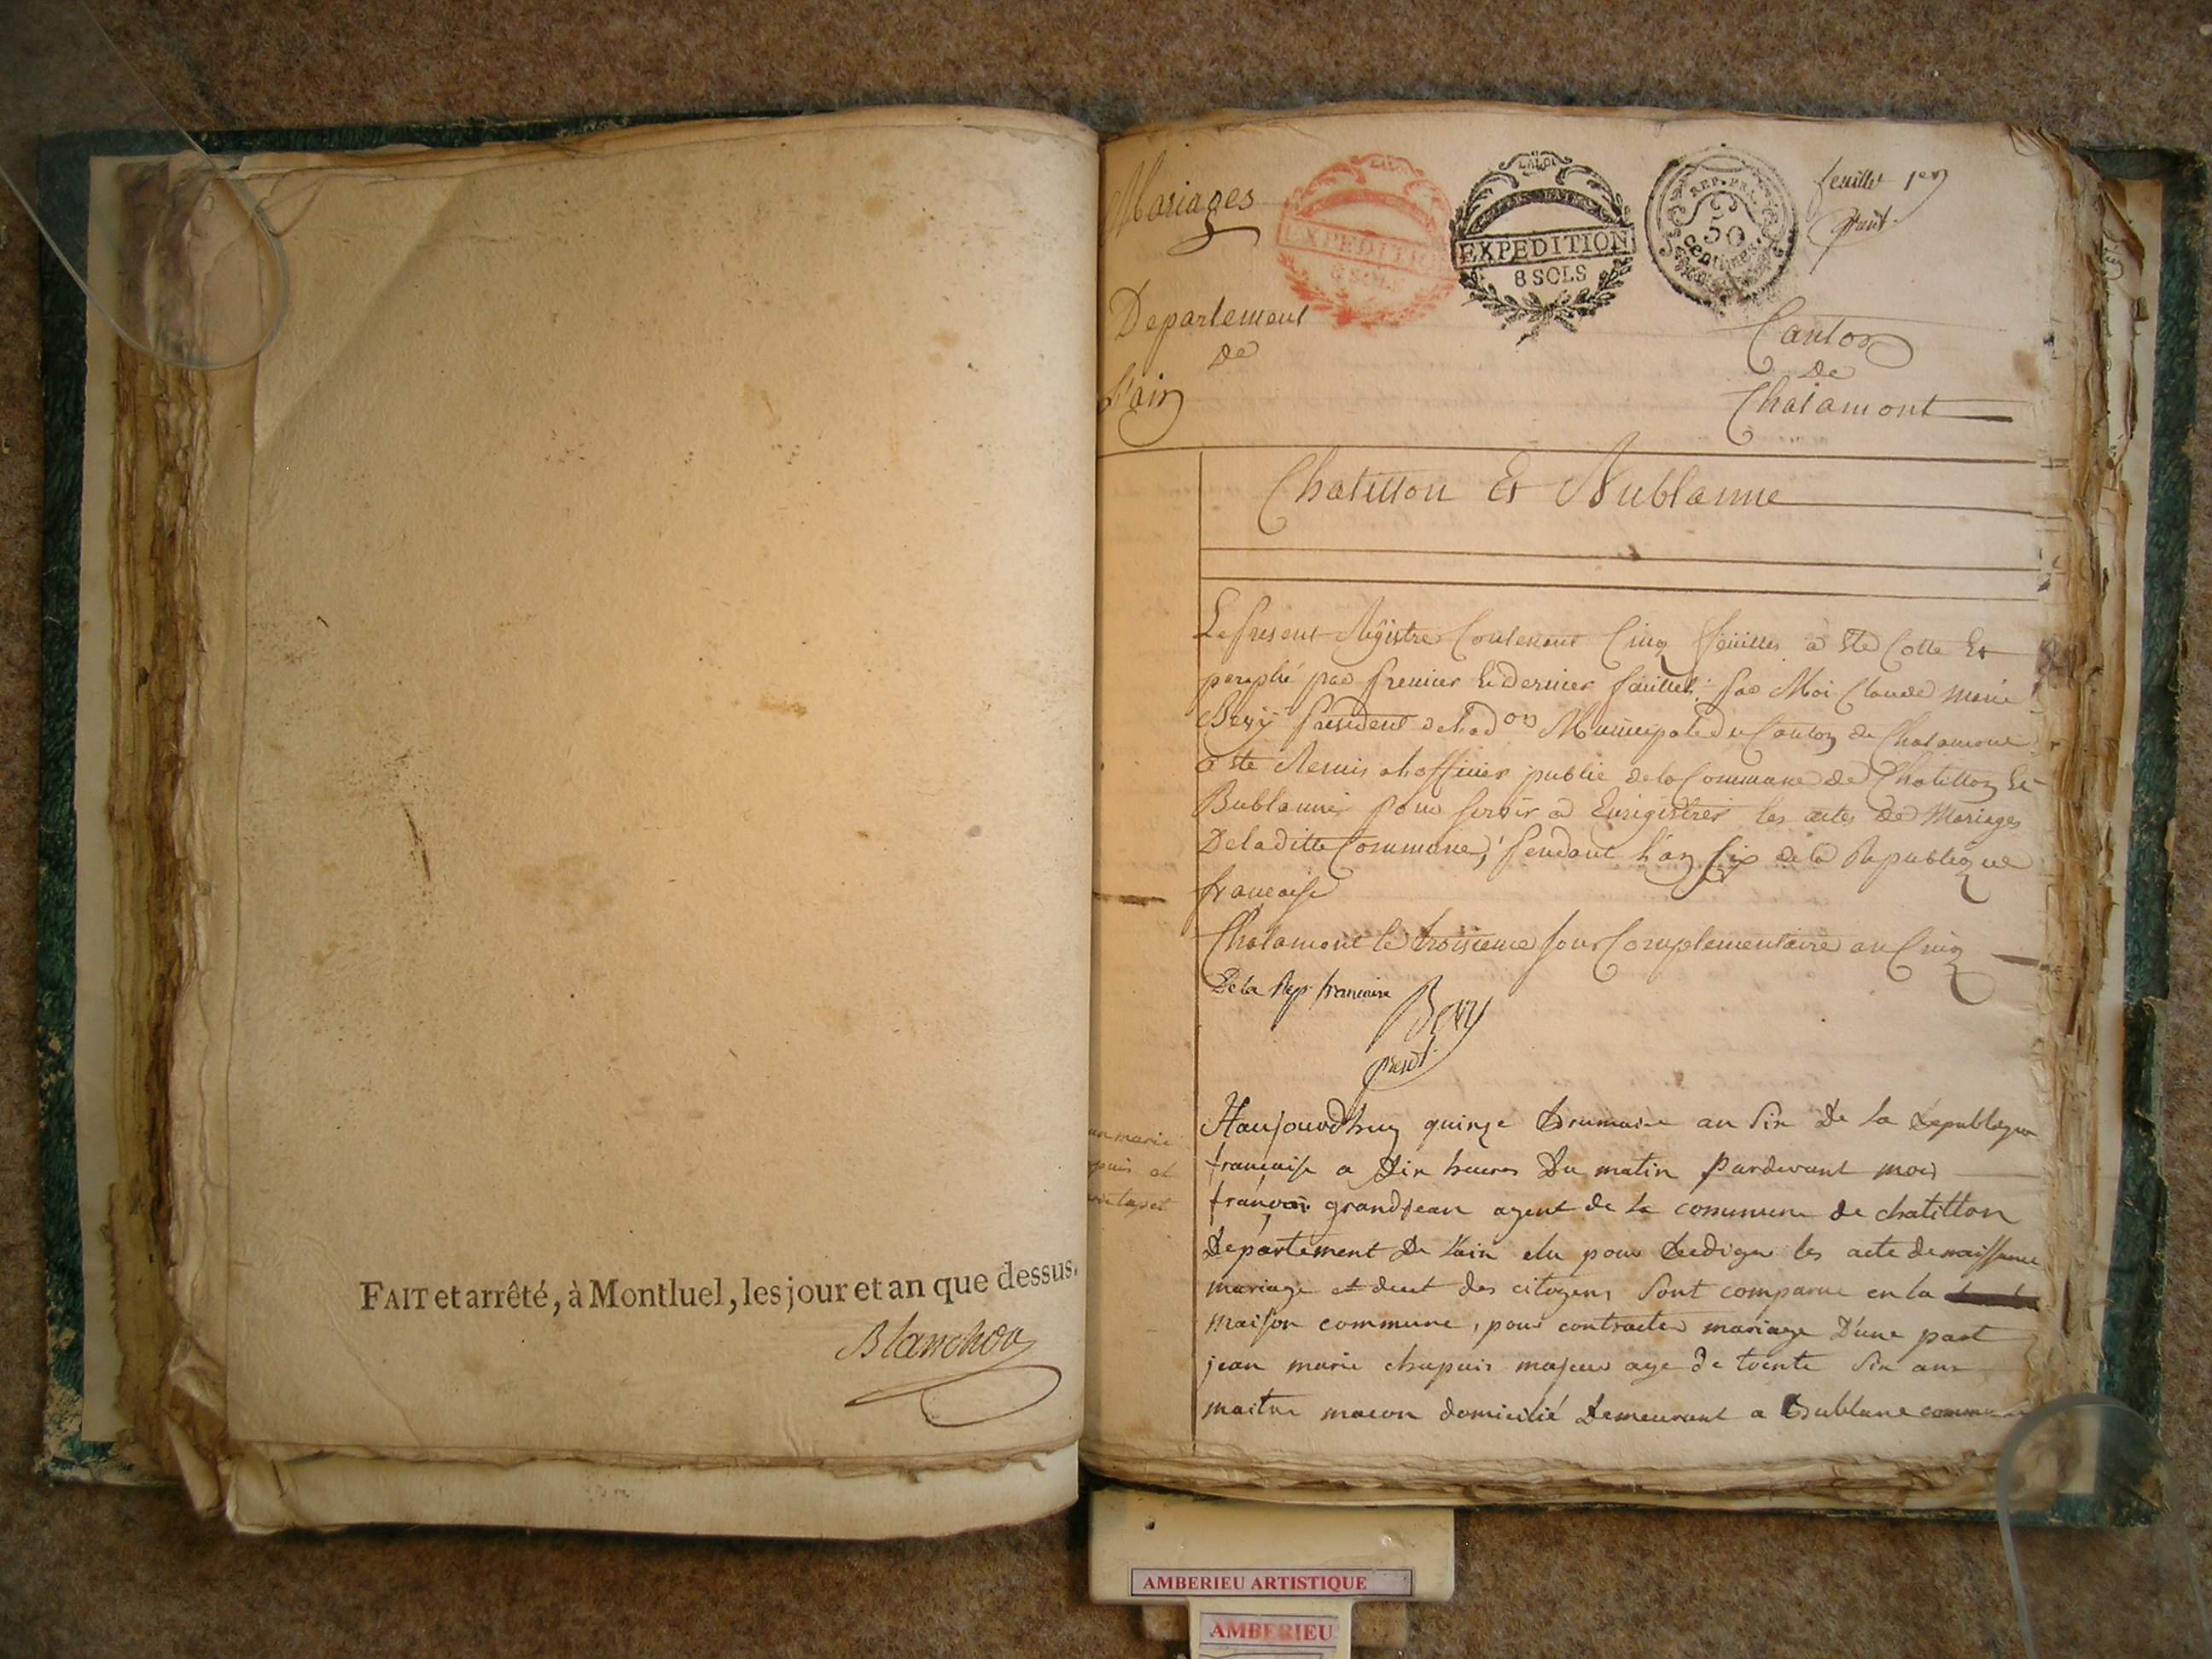 FAIT et arrêté, à Montluel, les jour et an que dessus.
Blanchon
Mariages
LALOI
EXPEDITION
8 SOLS
LALOI
EXPEDITION
8 SOLS
REP. FRA
50
centimes
feuillet 1er
Departement
de
l'ain
Canton
de
Chalamont
Chatillon Et Bublanne
Le present Régistre Contenant Cinq feüilles a Ete Cotte Et
paraphé par premier Et dernier feuillet par Moi Claude Marie
president de l'ad.on Municipale du Canton de Chalamont
a Ete Remis a l'officier public de la Commune de Chatillon Et
Bublanne pour servir a Enrigistrer les actes de Mariages
De la ditte Commune, pendant l'an six de la Republique
francaise
Chalamont le troisieme jour Complementaire an Cinq
De la Rep. francaise
presdt.
an marie
puis et
Haujourdhuy quinze brumaire an six de la Republique
francaise a dix heures du matin pardevant moi
françois grandjean agent de la commune de chatillon
departement de l'ain elu pour Rediger les acte de naissance
mariage et decet des citoyens sont comparue en la
maison commune, pour contracter mariage d'une part
jean marie chapuis majeur age de trente six ans
maitre macon domicilié demeurant a Bublane commune
AMBERIEU ARTISTIQUE
AMBERIEU